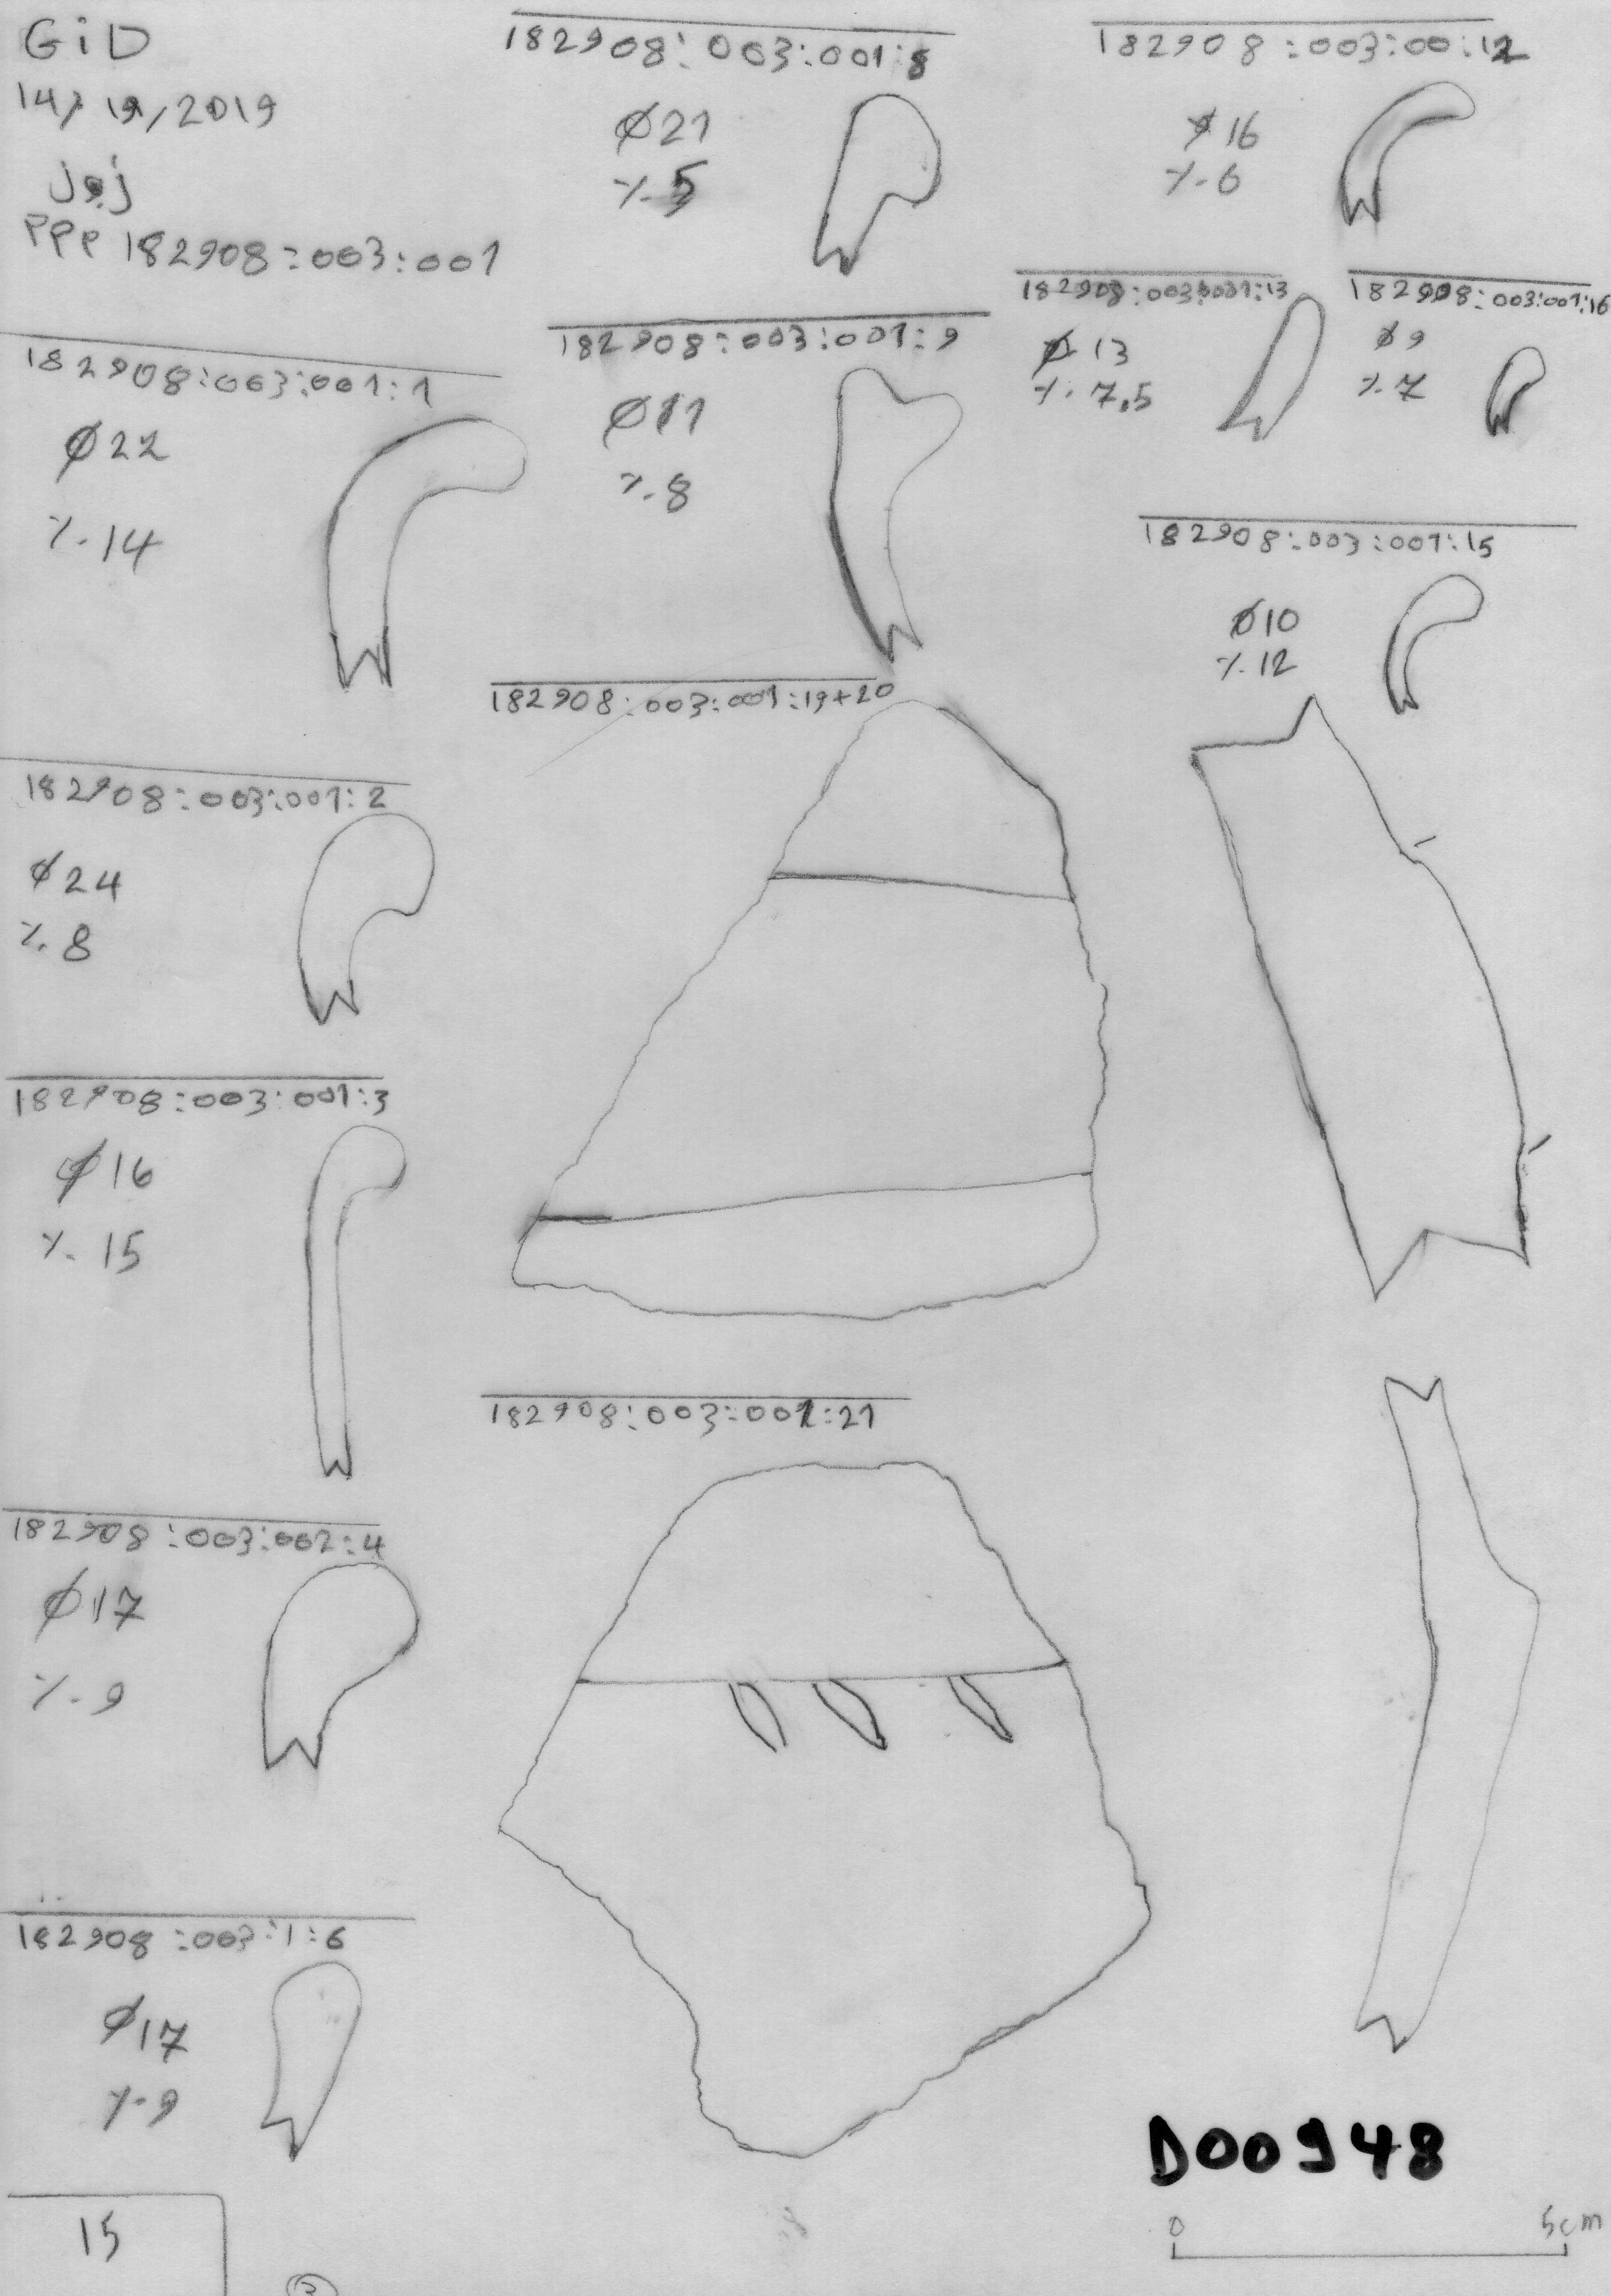 GiD
14/19/2019
ژبول
PPP 182908:003:001
182908:003:001:1
Ø22
%.14
182908:003:001:2
Ø24
%.8
182908:003:001:3
Ø16
%.15
182908:003:001:4
Ø17
%.9
182908:003:1:6
Ø17
%.9
15
3
182908:003:001:8
Ø21
%.5
182908:003:001:9
Ø11
%.8
182908:003:001:19+20
182908:003:001:21
182908:003:00:12
Ø16
%.6
182908:003:001:13
Ø13
%.7,5
182908:003:001:16
Ø9
%.7
182908:003:001:15
Ø10
%.12
D00948
0 5cm